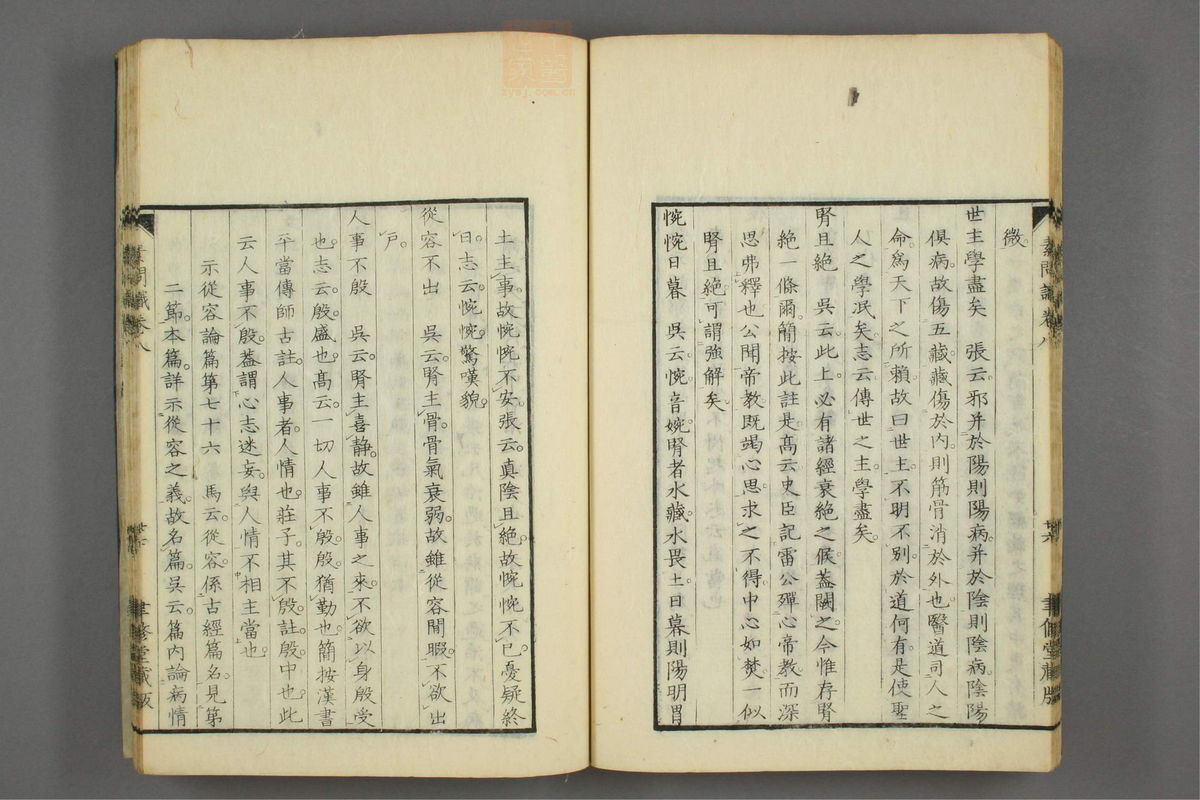 微
世主學盡矣 張云邪并於陽則陽病并於陰則陰病陰陽
俱病故傷五藏藏傷於內則筋骨消於外也醫道司人之
命爲天下之所賴故曰世主不明不別於道何有是使聖
人之學泯矣志云傳世之主學盡矣
腎且絕 吳云此上必有諸經衰絕之候蓋闕之今惟存腎
絕一條爾簡按此註是高云史臣記雷公殫心帝教而深
思弗釋也公聞帝教既竭心思求之不得中心如焚一似
腎且絕可謂強解矣
惋惋日暮 吳云惋音婉腎者水藏水畏土日暮則陽明胃
土主事故惋惋不安張云真陰且絕故惋惋不已憂疑終
日志云惋惋驚嘆貌
從容不出 吳云腎主骨骨氣衰弱故雖從容閒暇不欲出
戶
人事不殷 吳云腎主喜靜故雖人事之來不欲以身殷受
也志云殷盛也高云一切人事不殷殷猶勤也簡按漢書
平當傳師古註人事者人情也莊子其不殷註殷中也此
云人事不殷蓋謂心志迷妄與人情不相主當也
示從容論篇第七十六 馬云從容係古經篇名見第
二節本篇詳示從容之義故名篇吳云篇內論病情
素問識卷八
聿修堂藏版
素問識卷八
聿修堂藏版